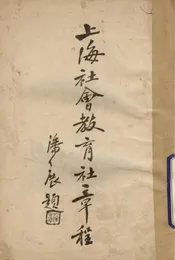 上海社會教育社章程
潘公展題